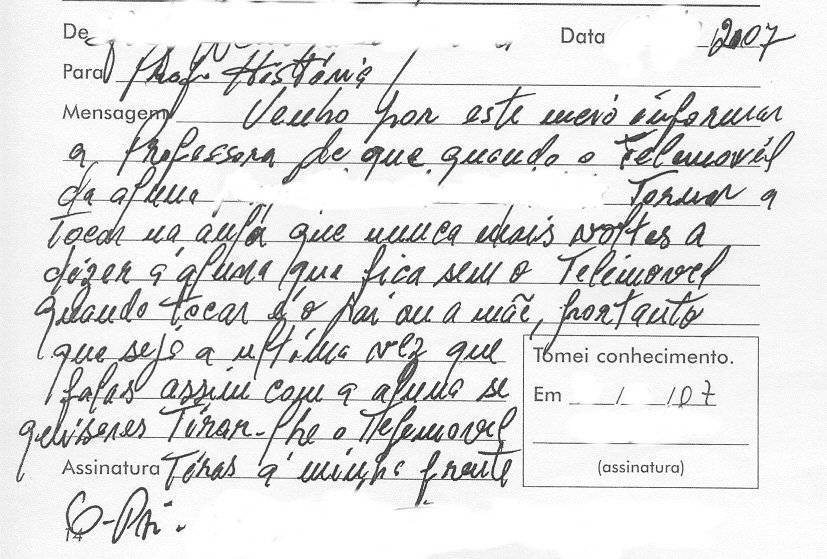 De Data 2007
Para Prof. História
Mensagem Venho por este meio informar
a Professora de que quando o Telemovél
da aluna Tornar a
Tocar na aula que nunca mais voltes a
dizer á aluna que fica sem o Telemovel
quando tocar é o pai ou a mãe, portanto
que sejá a ultima vez que
falas assim com a aluna se
quiseres Tirar-lhe o Telemovel
Assinatura Tiras á minha frente
O-Pai.
14
Tomei conhecimento.
Em / /07
(assinatura)